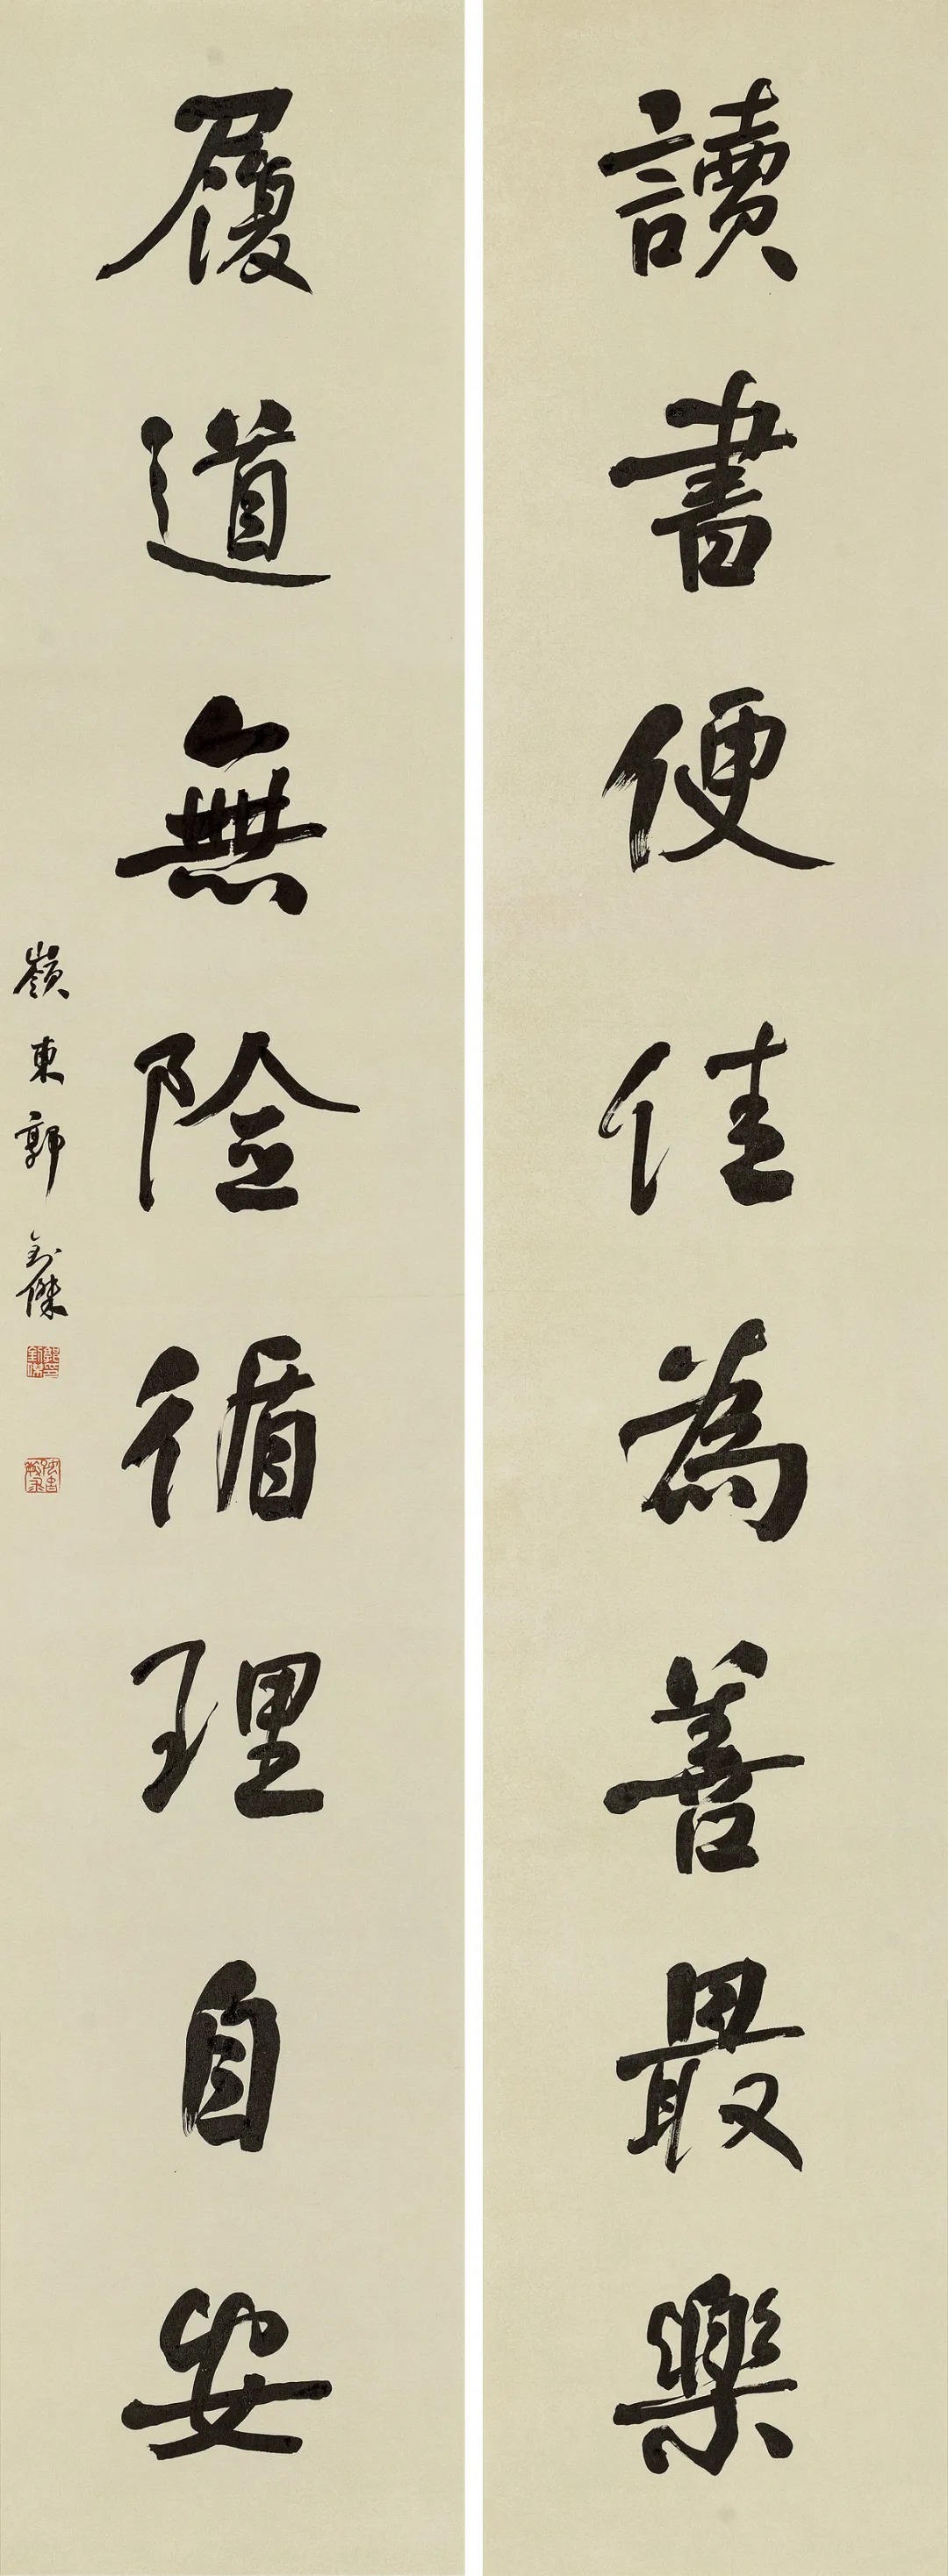 讀書便佳為善最樂
履道無險循理自安
嶺東郭釗傑